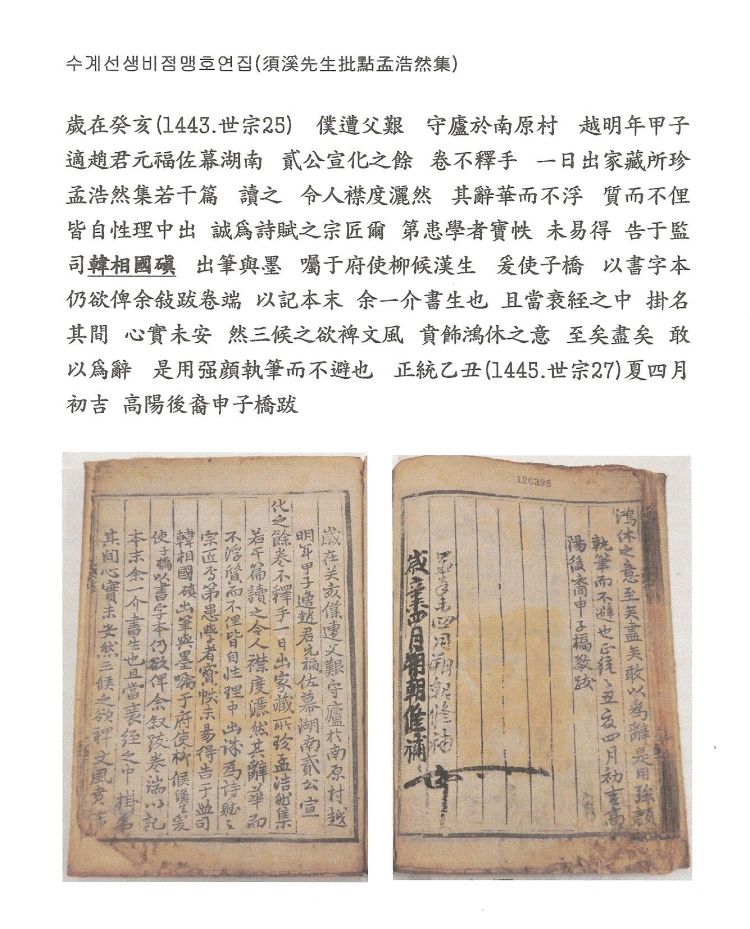 수계선생비점맹호연집(須溪先生批點孟浩然集)
歲在癸亥(1443.世宗25) 僕遭父艱 守廬於南原村 越明年甲子
適趙君元福佐幕湖南 貳公宣化之餘 卷不釋手 一日出家藏所珍
孟浩然集若干篇 讀之 令人襟度灑然 其辭華而不浮 質而不俚
皆自性理中出 誠爲詩賦之宗匠爾 第患學者寶帙 未易得 告于監
司韓相國磌 出筆與墨 囑于府使柳候漢生 爰使子橋 以書字本
仍欲俾余敍跋卷端 以記本末 余一介書生也 且當衰絰之中 掛名
其間 心實未安 然三候之欲裨文風 賁飾鴻休之意 至矣盡矣 敢
以爲辭 是用强顔執筆而不避也 正統乙丑(1445.世宗27)夏四月
初吉 高陽後裔申子橋跋
歲在癸亥僕遭父艱守廬於南原村越
明年甲子適趙君元福佐幕湖南貳公宣
化之餘卷不釋手一日出家藏所珍孟浩然集
若干篇讀之令人襟度灑然其辭華而
不浮質而不俚皆自性理中出誠爲詩賦之
宗匠爾第患學者寶帙未易得告于監司
韓相國磌出筆與墨囑于府使柳候漢生爰
使子橋以書字本仍欲俾余敍跋卷端以記
本末余一介書生也且當衰絰之中掛名
其間心實未安然三候之欲裨文風賁飾
126398
鴻休之意至矣盡矣敢以爲辭是用强顔
執筆而不避也正統乙丑夏四月初吉高
陽後裔申子橋敬跋
四月朔朝修補
歲辛未四月朔朝修補